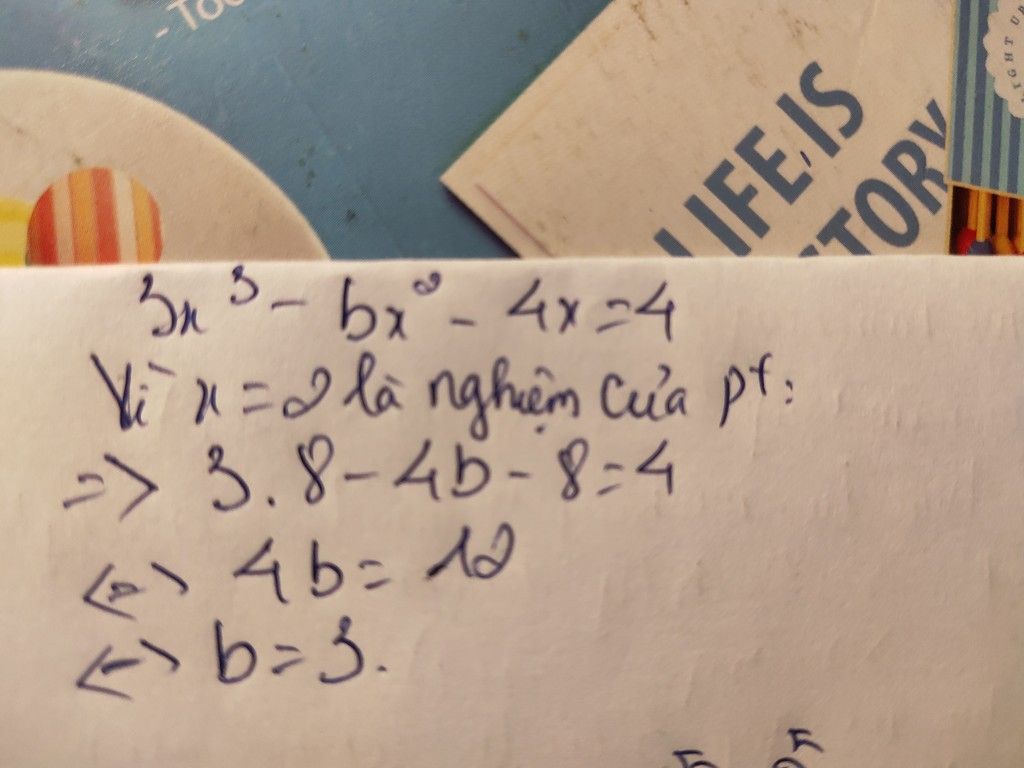 - Too
LIFE, IS
TORY
IGHT UP
3x³ - bx² - 4x = 4
Vì x = 2 là nghiệm của pt:
=> 3.8 - 4b - 8 = 4
<=> 4b = 12
<=> b = 3.
5 5